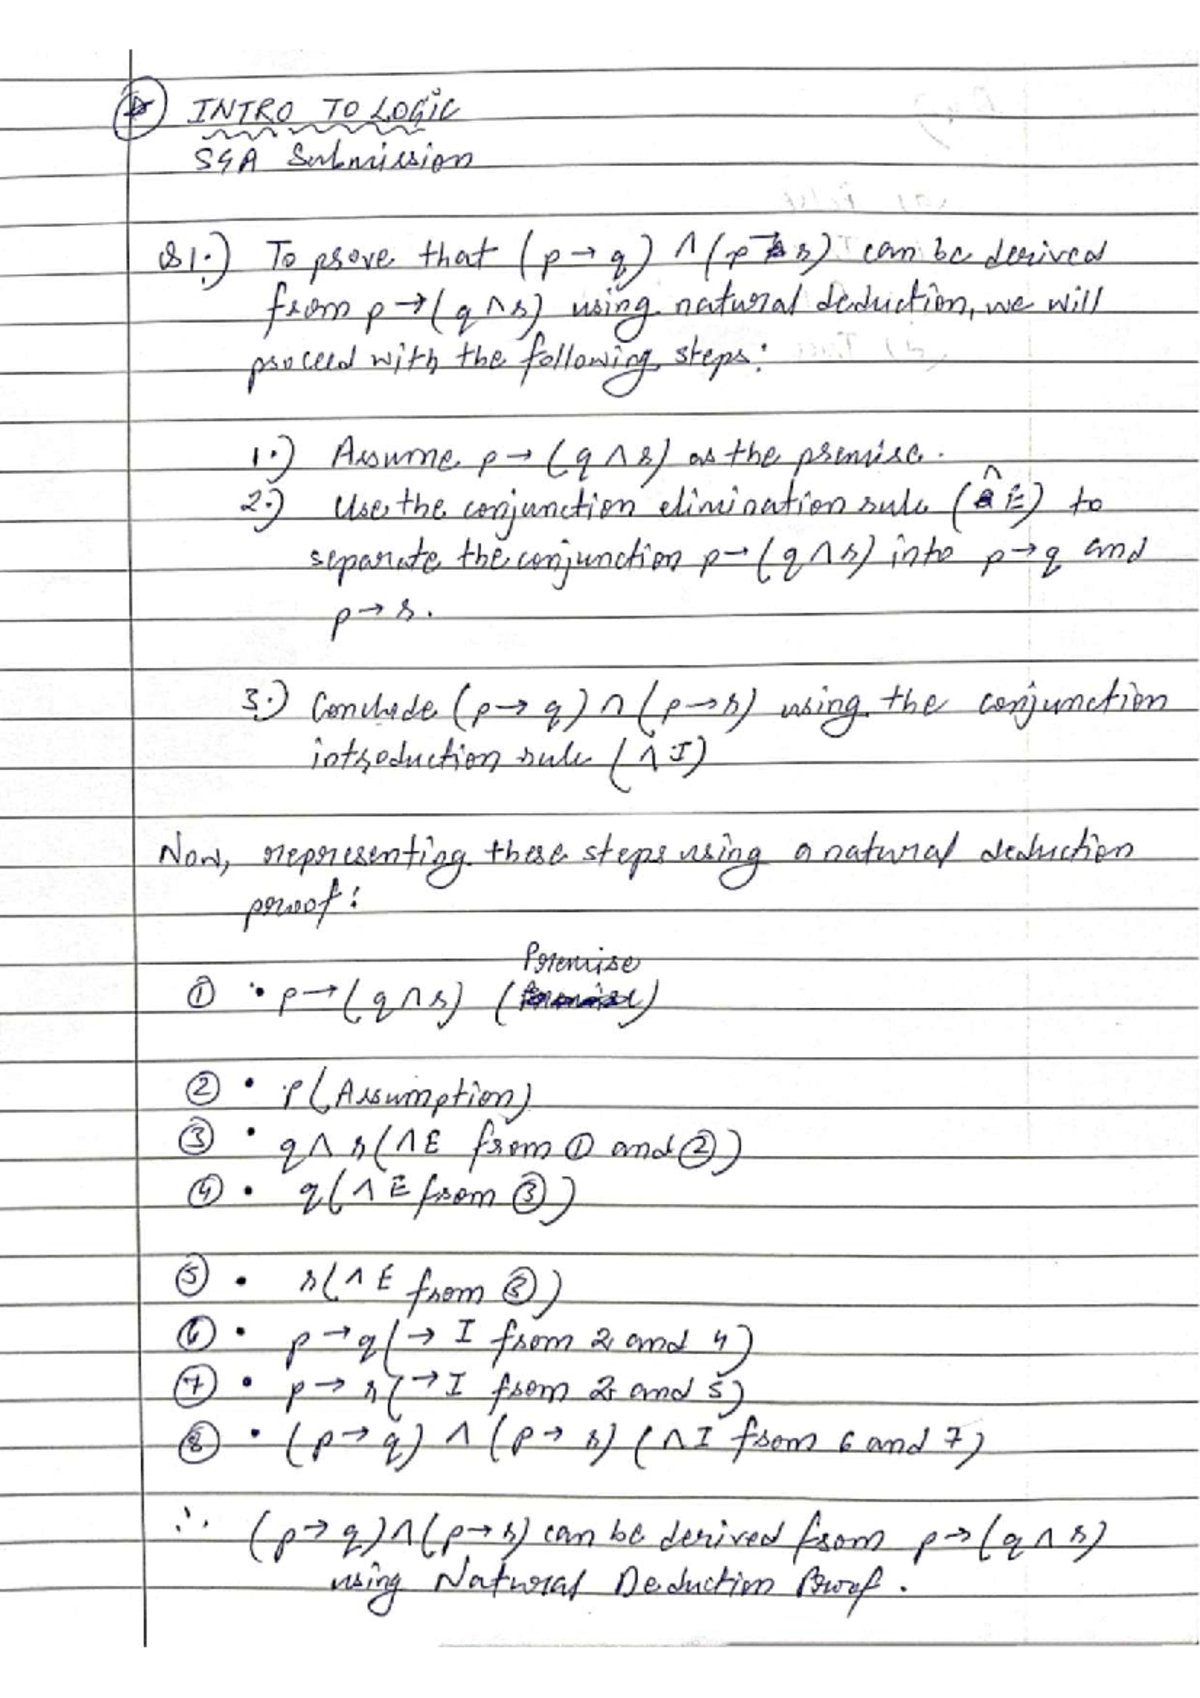 INTRO TO LOGIC
SGA Submission
Q1.) To prove that (p→q) ∧ (p→r) can be derived
from p→(q∧r) using natural deduction, we will
proceed with the following steps:
1.) Assume p→(q∧r) as the premise.
2.) Use the conjunction elimination rule (∧E) to
separate the conjunction p→(q∧r) into p→q and
p→r.
3.) Conclude (p→q)∧(p→r) using the conjunction
introduction rule (∧I)
Now, representing these steps using a natural deduction
proof:
① • p→(q∧r) (Premise)
② • p (Assumption)
③ • q∧r (∧E from ① and ②)
④ • q (∧E from ③)
⑤ • r (∧E from ③)
⑥ • p→q (→I from 2 and 4)
⑦ • p→r (→I from 2 and 5)
⑧ • (p→q) ∧ (p→r) (∧I from 6 and 7)
∴ (p→q)∧(p→r) can be derived from p→(q∧r)
using Natural Deduction Proof.